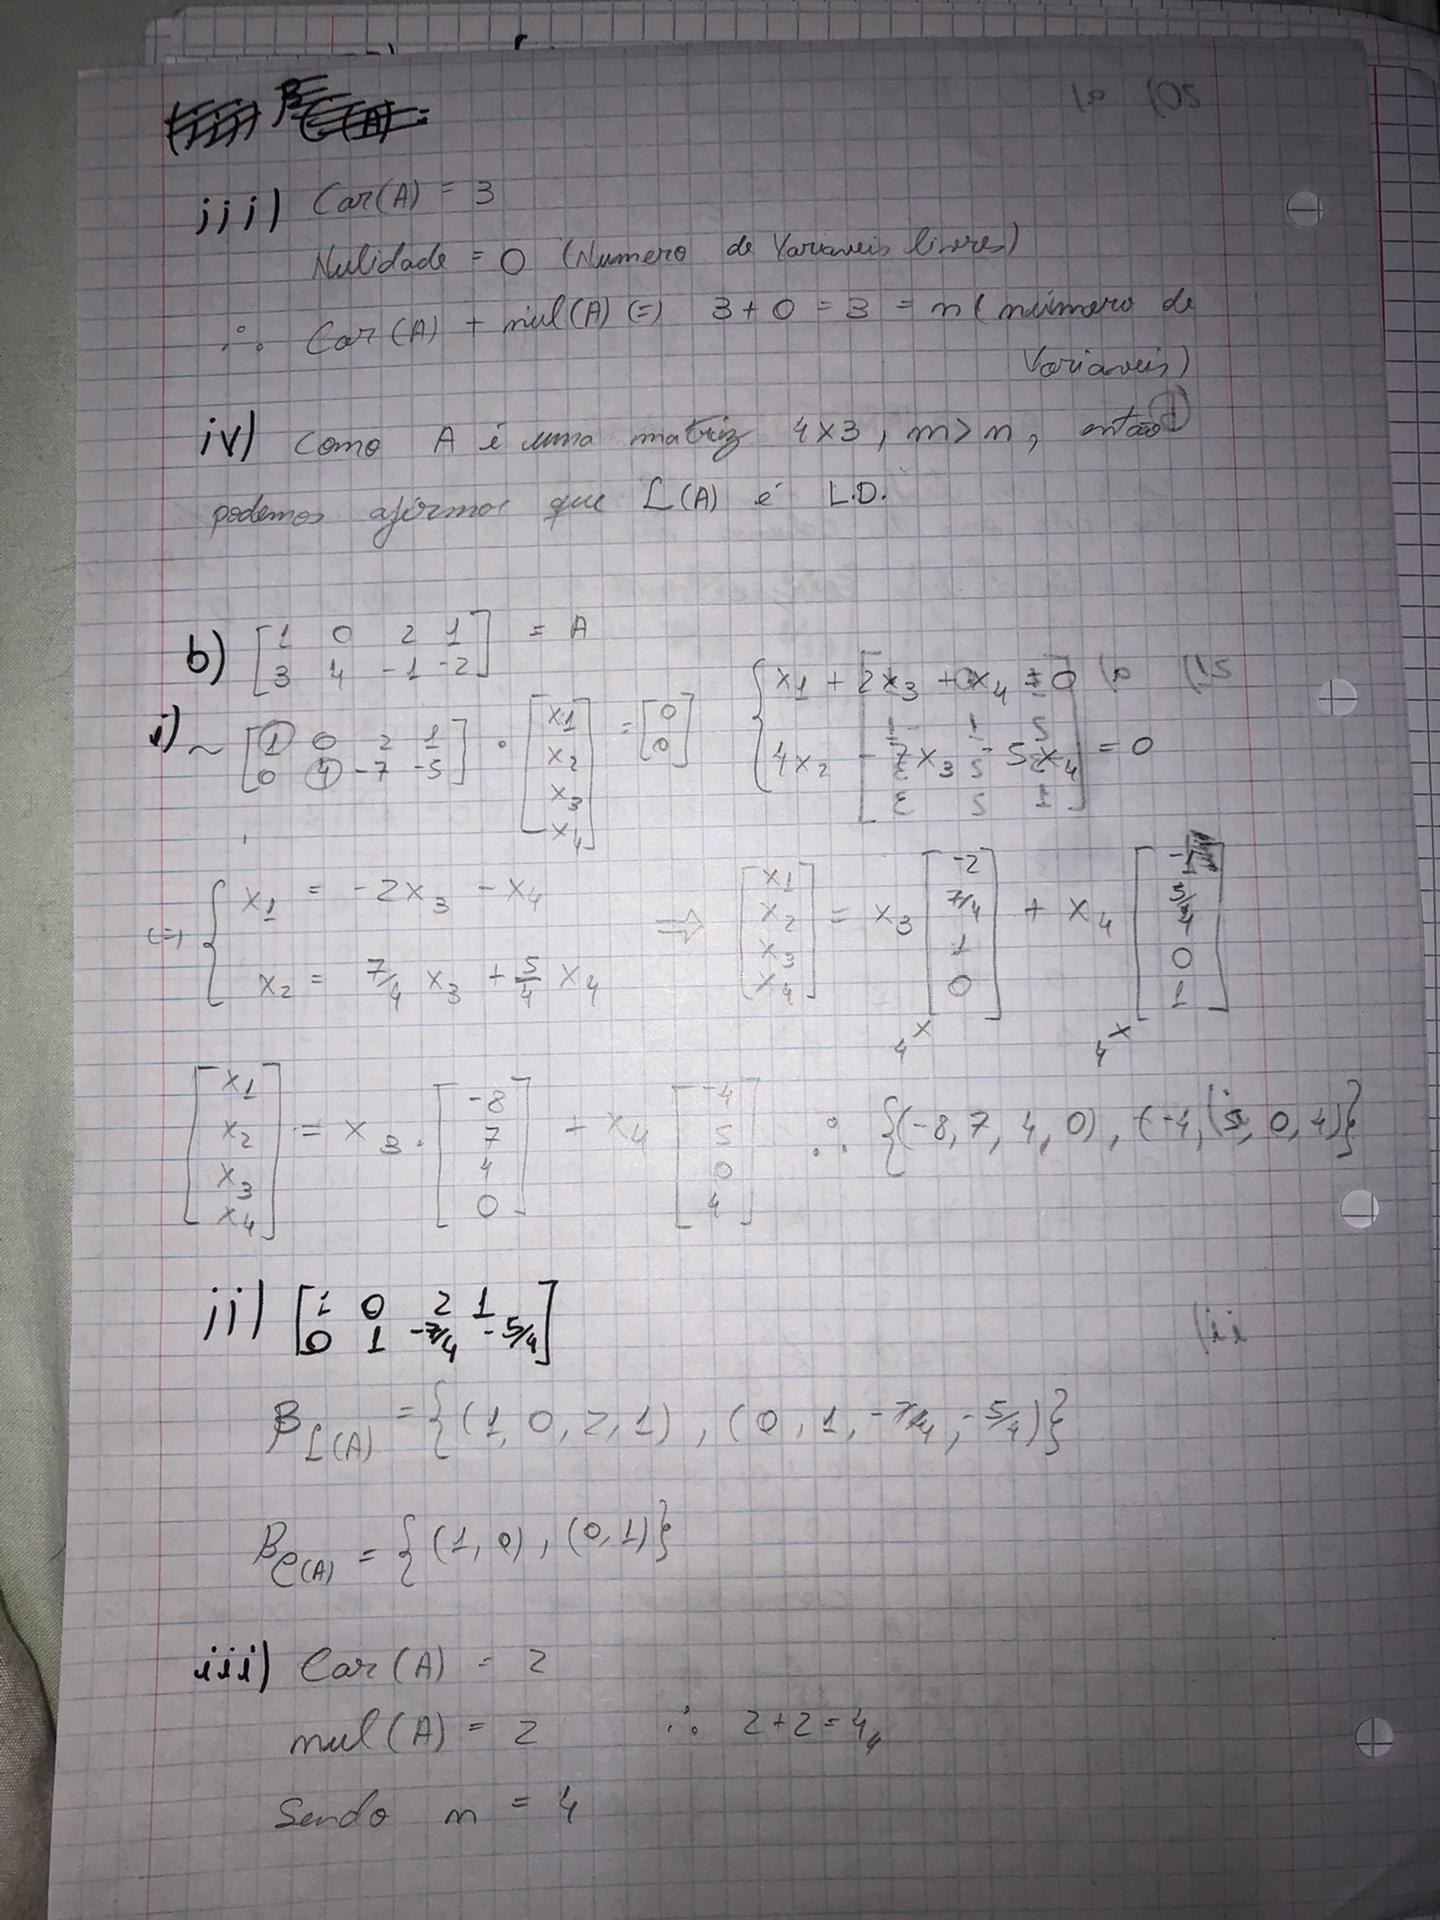 iii) Car(A) = 3
Nulidade = 0 (Numero de Variaveis livres)
∴ Car(A) + nul(A) (=) 3 + 0 = 3 = n (número de
Variaveis)
iv) Como A é uma matriz 4x3, m > n, então
podemos afirmar que L(A) é L.D.
b) [1 0 2 1; 3 4 -1 -2] = A
i) ~ [1 0 2 1; 0 4 -7 -5] · [x1; x2; x3; x4] = [0; 0] { x1 + 2x3 + x4 = 0; 4x2 - 7x3 - 5x4 = 0
(=) { x1 = -2x3 - x4; x2 = 7/4 x3 + 5/4 x4 ⇒ [x1; x2; x3; x4] = x3 [-2; 7/4; 1; 0] + x4 [-1; 5/4; 0; 1]
4x 4x
[x1; x2; x3; x4] = x3 · [-8; 7; 4; 0] + x4 [-4; 5; 0; 4] ∴ {(-8, 7, 4, 0), (-4, 5, 0, 4)}
ii) [1 0 2 1; 0 1 -7/4 -5/4]
B L(A) = {(1, 0, 2, 1), (0, 1, -7/4, -5/4)}
B C(A) = {(1, 0), (0, 1)}
iii) Car(A) = 2
nul(A) = 2 ∴ 2 + 2 = 4
Sendo n = 4